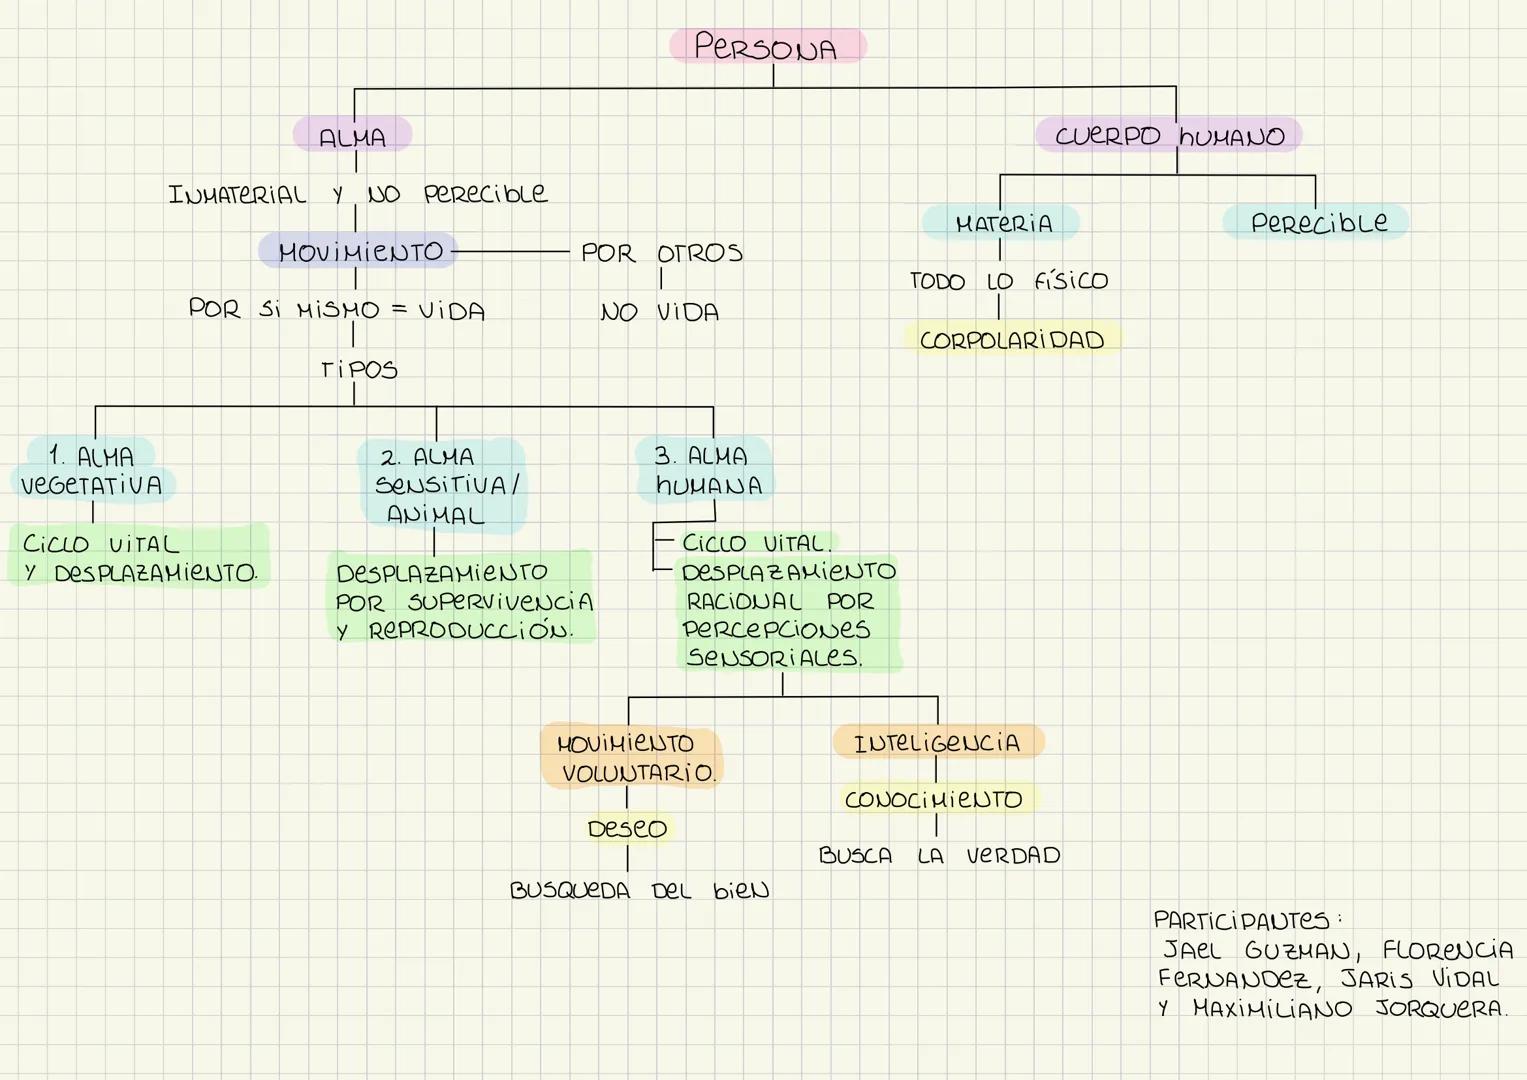 PERSONA
ALMA
CUERPO HUMANO
INMATERIAL Y NO PERECIBLE
MATERIA
PERECIBLE
MOVIMIENTO
POR OTROS
TODO LO FÍSICO
POR SI MISMO = VIDA
NO VIDA
CORPOLARIDAD
TIPOS
1. ALMA
VEGETATIVA
CICLO VITAL
Y DESPLAZAMIENTO.
2. ALMA
SENSITIVA/
ANIMAL
DESPLAZAMIENTO
POR SUPERVIVENCIA
Y REPRODUCCIÓN.
3. ALMA
HUMANA
CICLO VITAL.
DESPLAZAMIENTO
RACIONAL POR
PERCEPCIONES
SENSORIALES.
MOVIMIENTO
VOLUNTARIO.
DESEO
BUSQUEDA DEL BIEN
INTELIGENCIA
CONOCIMIENTO
BUSCA LA VERDAD
PARTICIPANTES:
JAEL GUZMAN, FLORENCIA
FERNANDEZ, JARIS VIDAL
Y MAXIMILIANO JORQUERA.